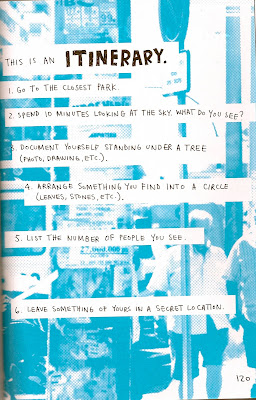 THIS IS AN ITINERARY.
1. GO TO THE CLOSEST PARK.
2. SPEND 10 MINUTES LOOKING AT THE SKY. WHAT DO YOU SEE?
3. DOCUMENT YOURSELF STANDING UNDER A TREE
(PHOTO, DRAWING, ETC.).
4. ARRANGE SOMETHING YOU FIND INTO A CIRCLE
(LEAVES, STONES, ETC.).
5. LIST THE NUMBER OF PEOPLE YOU SEE.
6. LEAVE SOMETHING OF YOURS IN A SECRET LOCATION.
120